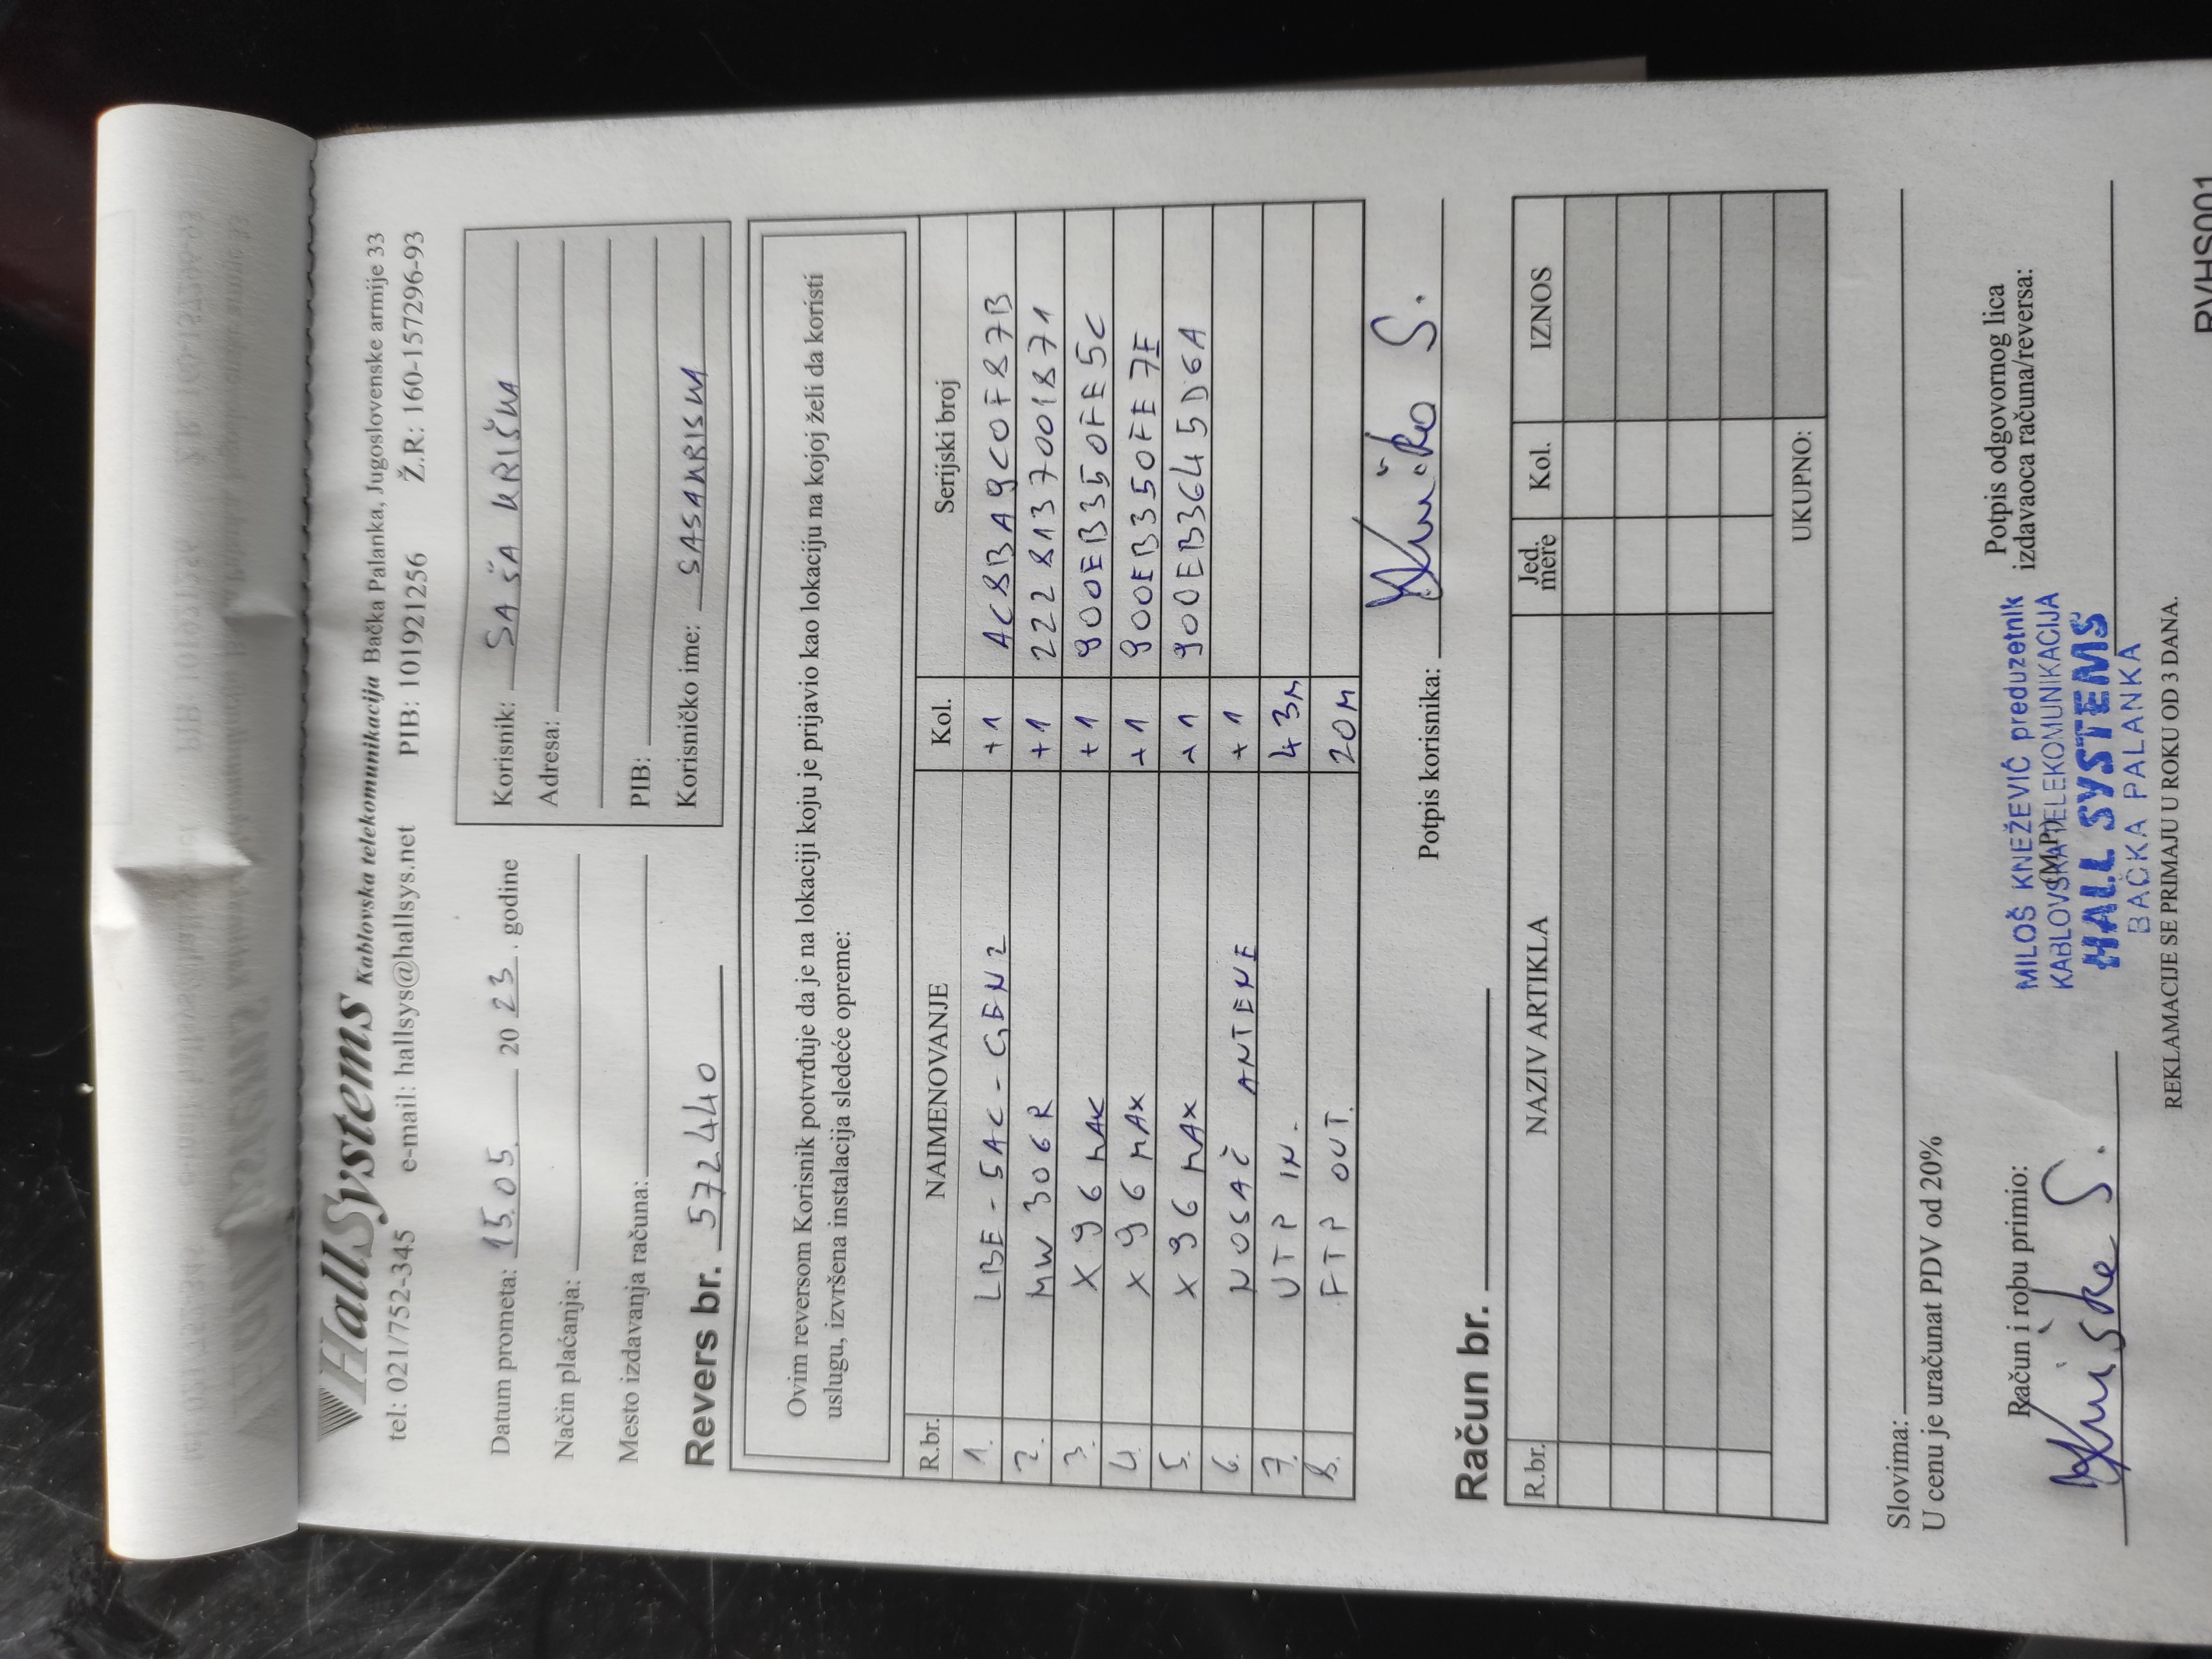 HallSystems Kablovska telekomunikacija Bačka Palanka, Jugoslovenske armije 33
tel: 021/752-345 e-mail: hallsys@hallsys.net PIB: 101921256 Ž.R: 160-1572296-93
Datum prometa: 15.05. 2023. godine
Način plaćanja:
Mesto izdavanja računa:
Revers br. 572440
Korisnik: SAŠA KRIŠKA
Adresa:
PIB:
Korisničko ime: SASAKRISKA
Ovim reversom Korisnik potvrđuje da je na lokaciji koju je prijavio kao lokaciju na kojoj želi da koristi
uslugu, izvršena instalacija sledeće opreme:
R.br. NAIMENOVANJE Kol. Serijski broj
1. LBE-5AC-GEN2 +1 AC8BA9C0F87B
2. MW306R +1 2228137001871
3. X96 MAX +1 900EB350FE5C
4. X96 MAX +1 900EB350FE7E
5. X96 MAX +1 900EB3645D6A
6. NOSAČ ANTENE +1
7. UTP IN. 43M
8. FTP OUT. 20M
Potpis korisnika:
Račun br.
R.br. NAZIV ARTIKLA Jed. mere Kol. IZNOS
UKUPNO:
Slovima:
U cenu je uračunat PDV od 20%
Račun i robu primio:
(M.P.)
MILOŠ KNEŽEVIĆ preduzetnik
KABLOVSKA TELEKOMUNIKACIJA
HALL SYSTEMS
BAČKA PALANKA
Potpis odgovornog lica
izdavaoca računa/reversa:
REKLAMACIJE SE PRIMAJU U ROKU OD 3 DANA.
RVHS001